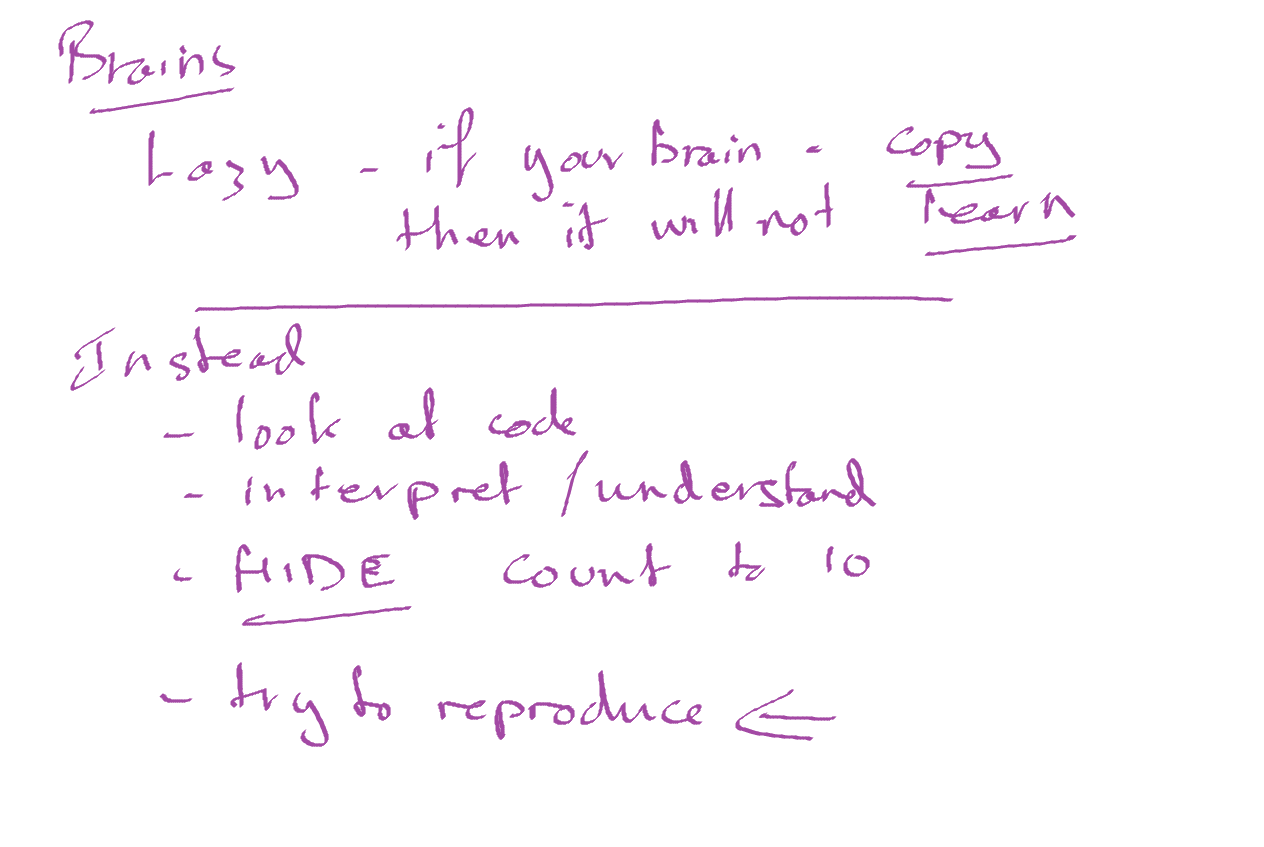 Brains
Lazy - if your brain - copy
then it will not learn
Instead
- look at code
- interpret / understand
- HIDE count to 10
- try to reproduce ←